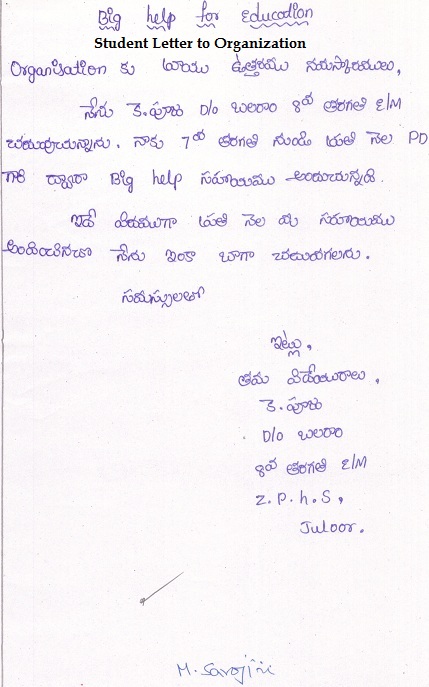 Big help for Education
Student Letter to Organization
Organisation కు వ్రాయు ఉత్తరము నమస్కారములు,
నేను కె. పూజ D/o బలరాం 8వ తరగతి E/M
చదువుచున్నాను. నాకు 7వ తరగతి నుండి ప్రతి నెల PD
గారి ద్వారా Big help సహాయము అందుచున్నది.
ఇదే విదముగా ప్రతి నెల మీ సహాయము
అందించినచో నేను ఇంకా బాగా చదువగలను.
నమస్సులతో
ఇట్లు,
తమ విదేయురాలు,
కె. పూజ
D/o బలరాం
8వ తరగతి E/M
Z.P.h.S,
Juloor.
M. Sarojini